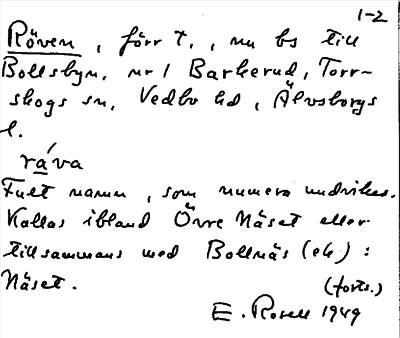 1-2
Röven, förr t., nu bs till
Bollsbyn, nr 1 Barkerud, Torr-
skogs sn, Vedbo hd, Älvsborgs
l.
råva
Fult namn, som numera undvikes.
Kallas ibland Övre Näset eller
tillsammans med Bollnäs (ek):
Näset.
(forts.)
E. Rosell 1949